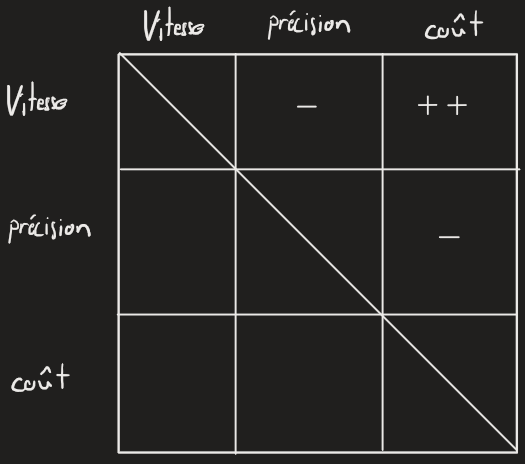 Vitesse précision coût
Vitesse - ++
précision -
coût